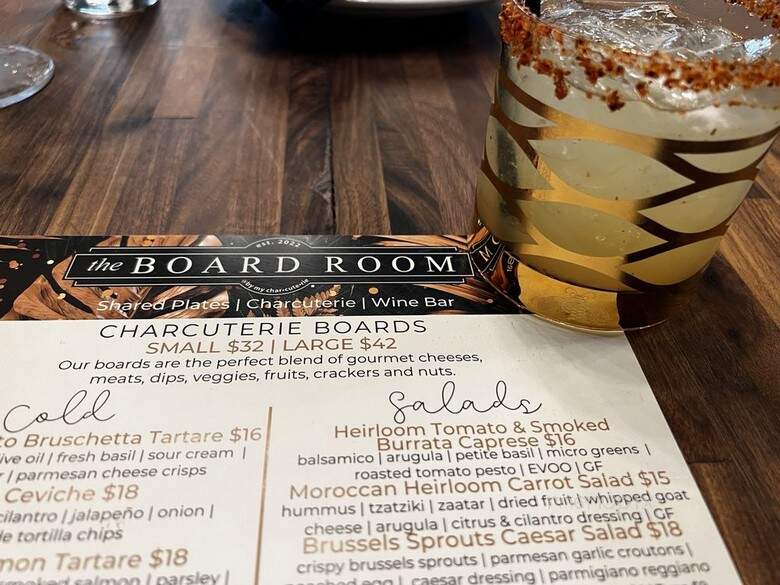 est. 2022
the BOARD ROOM
by my char·cu·te·rie
Shared Plates | Charcuterie | Wine Bar
CHARCUTERIE BOARDS
SMALL $32 | LARGE $42
Our boards are the perfect blend of gourmet cheeses,
meats, dips, veggies, fruits, crackers and nuts.
Cold
to Bruschetta Tartare $16
ive oil | fresh basil | sour cream |
| parmesan cheese crisps
Ceviche $18
cilantro | jalapeño | onion |
tortilla chips
mon Tartare $18
smoked salmon | parsley |
Salads
Heirloom Tomato & Smoked
Burrata Caprese $16
balsamico | arugula | petite basil | micro greens |
roasted tomato pesto | EVOO | GF
Moroccan Heirloom Carrot Salad $15
hummus | tzatziki | zaatar | dried fruit | whipped goat
cheese | arugula | citrus & cilantro dressing | GF
Brussels Sprouts Caesar Salad $18
crispy brussels sprouts | parmesan garlic croutons |
poached egg | caesar dressing | parmigiano reggiano